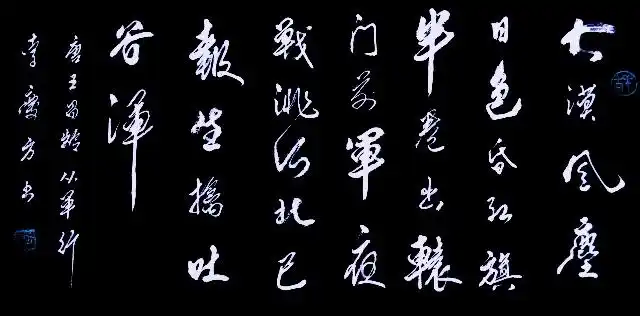 大漠风塵
日色昏红旗
半卷出轅
门前軍夜
戰洮河北已
報生擒吐
谷渾
唐王昌龄从軍行
李慶方书